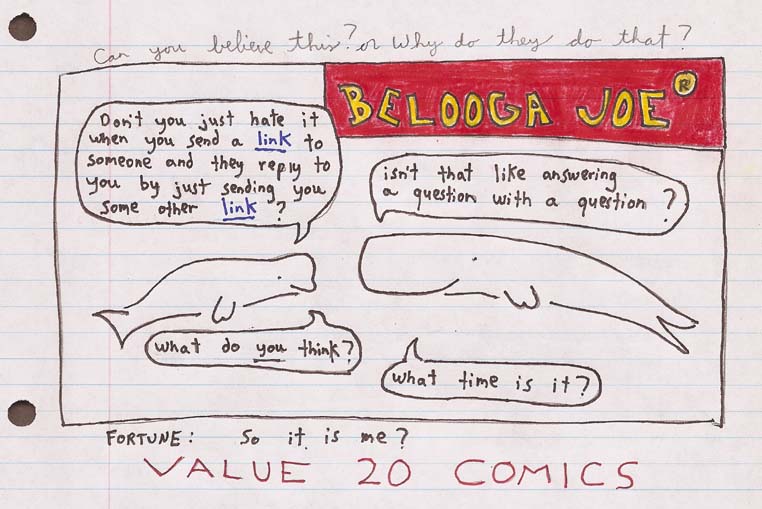 Can you believe this? or Why do they do that?
BELOOGA JOE®
Don't you just hate it
when you send a link to
someone and they reply to
you by just sending you
some other link?
isn't that like answering
a question with a question?
what do you think?
what time is it?
FORTUNE: So it is me?
VALUE 20 COMICS